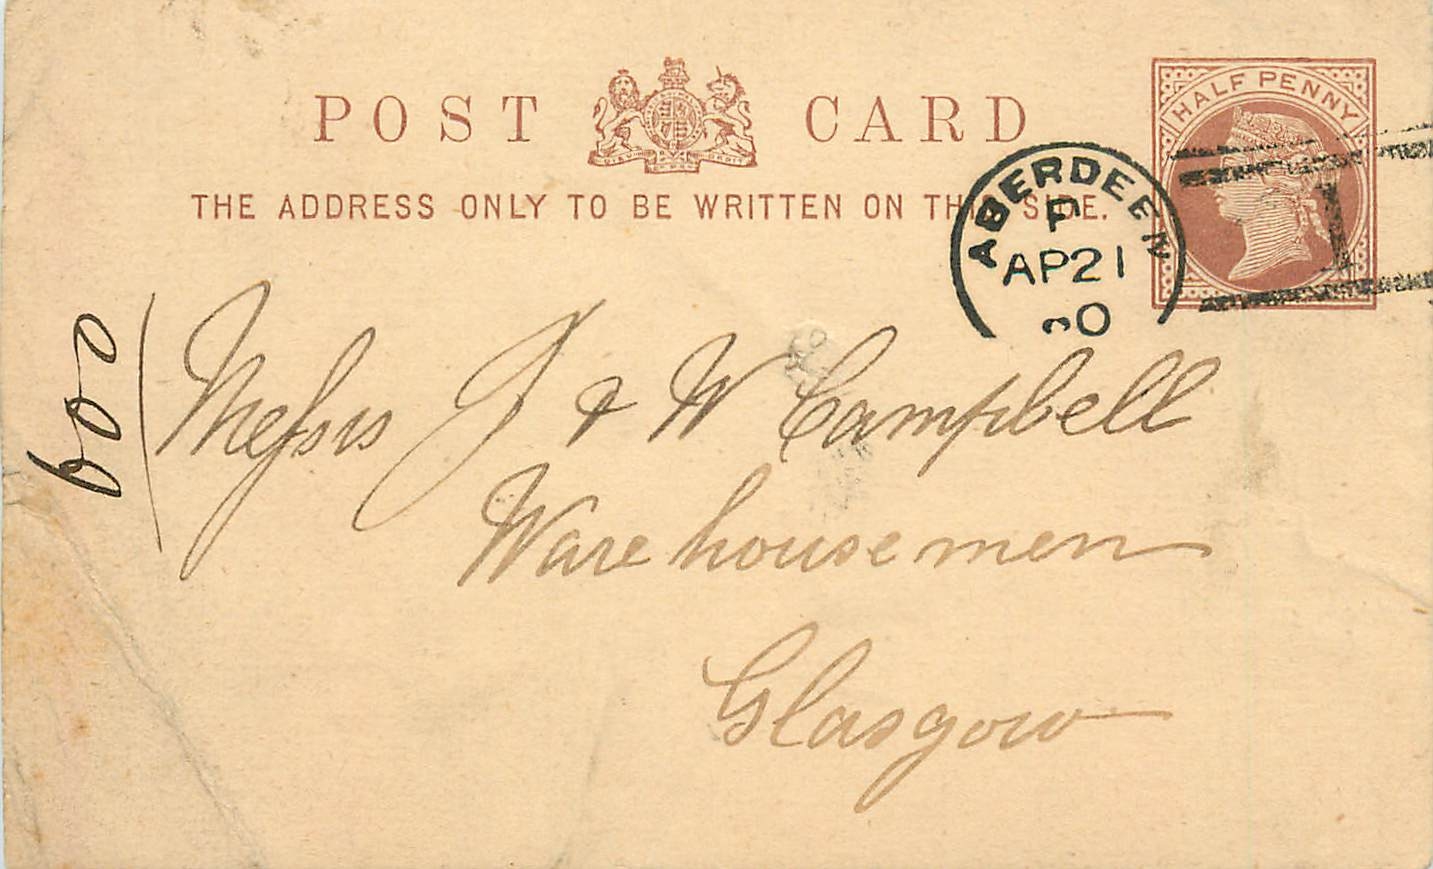 POST CARD
HALF PENNY
THE ADDRESS ONLY TO BE WRITTEN ON THE SIDE.
ABERDEEN
P
AP 21
0
1
Messrs J & W Campbell
Warehousemen
Glasgow